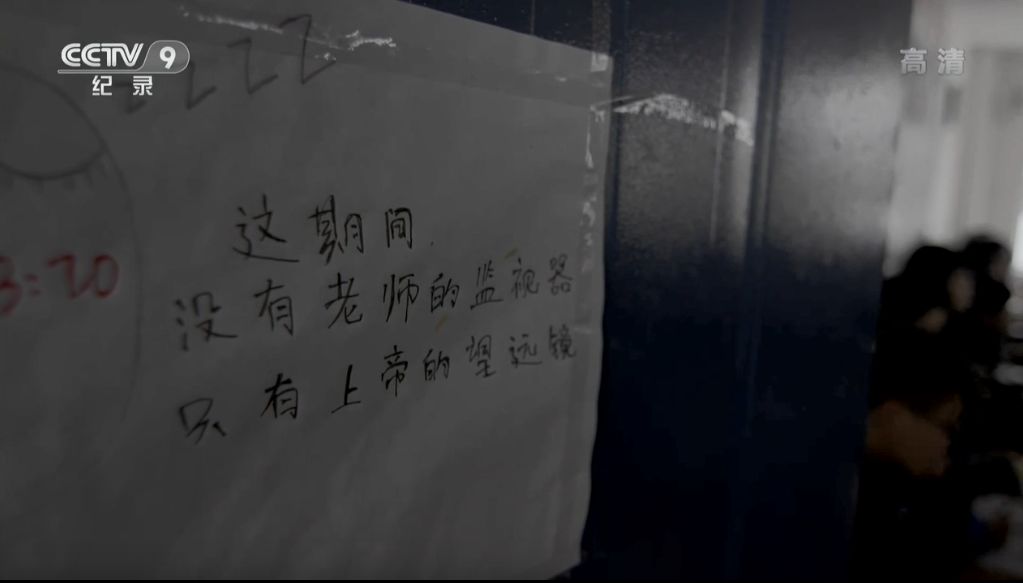 CCTV 9
纪录
高清
ZZZZ
3:20
这期间
没有老师的监视器
只有上帝的望远镜